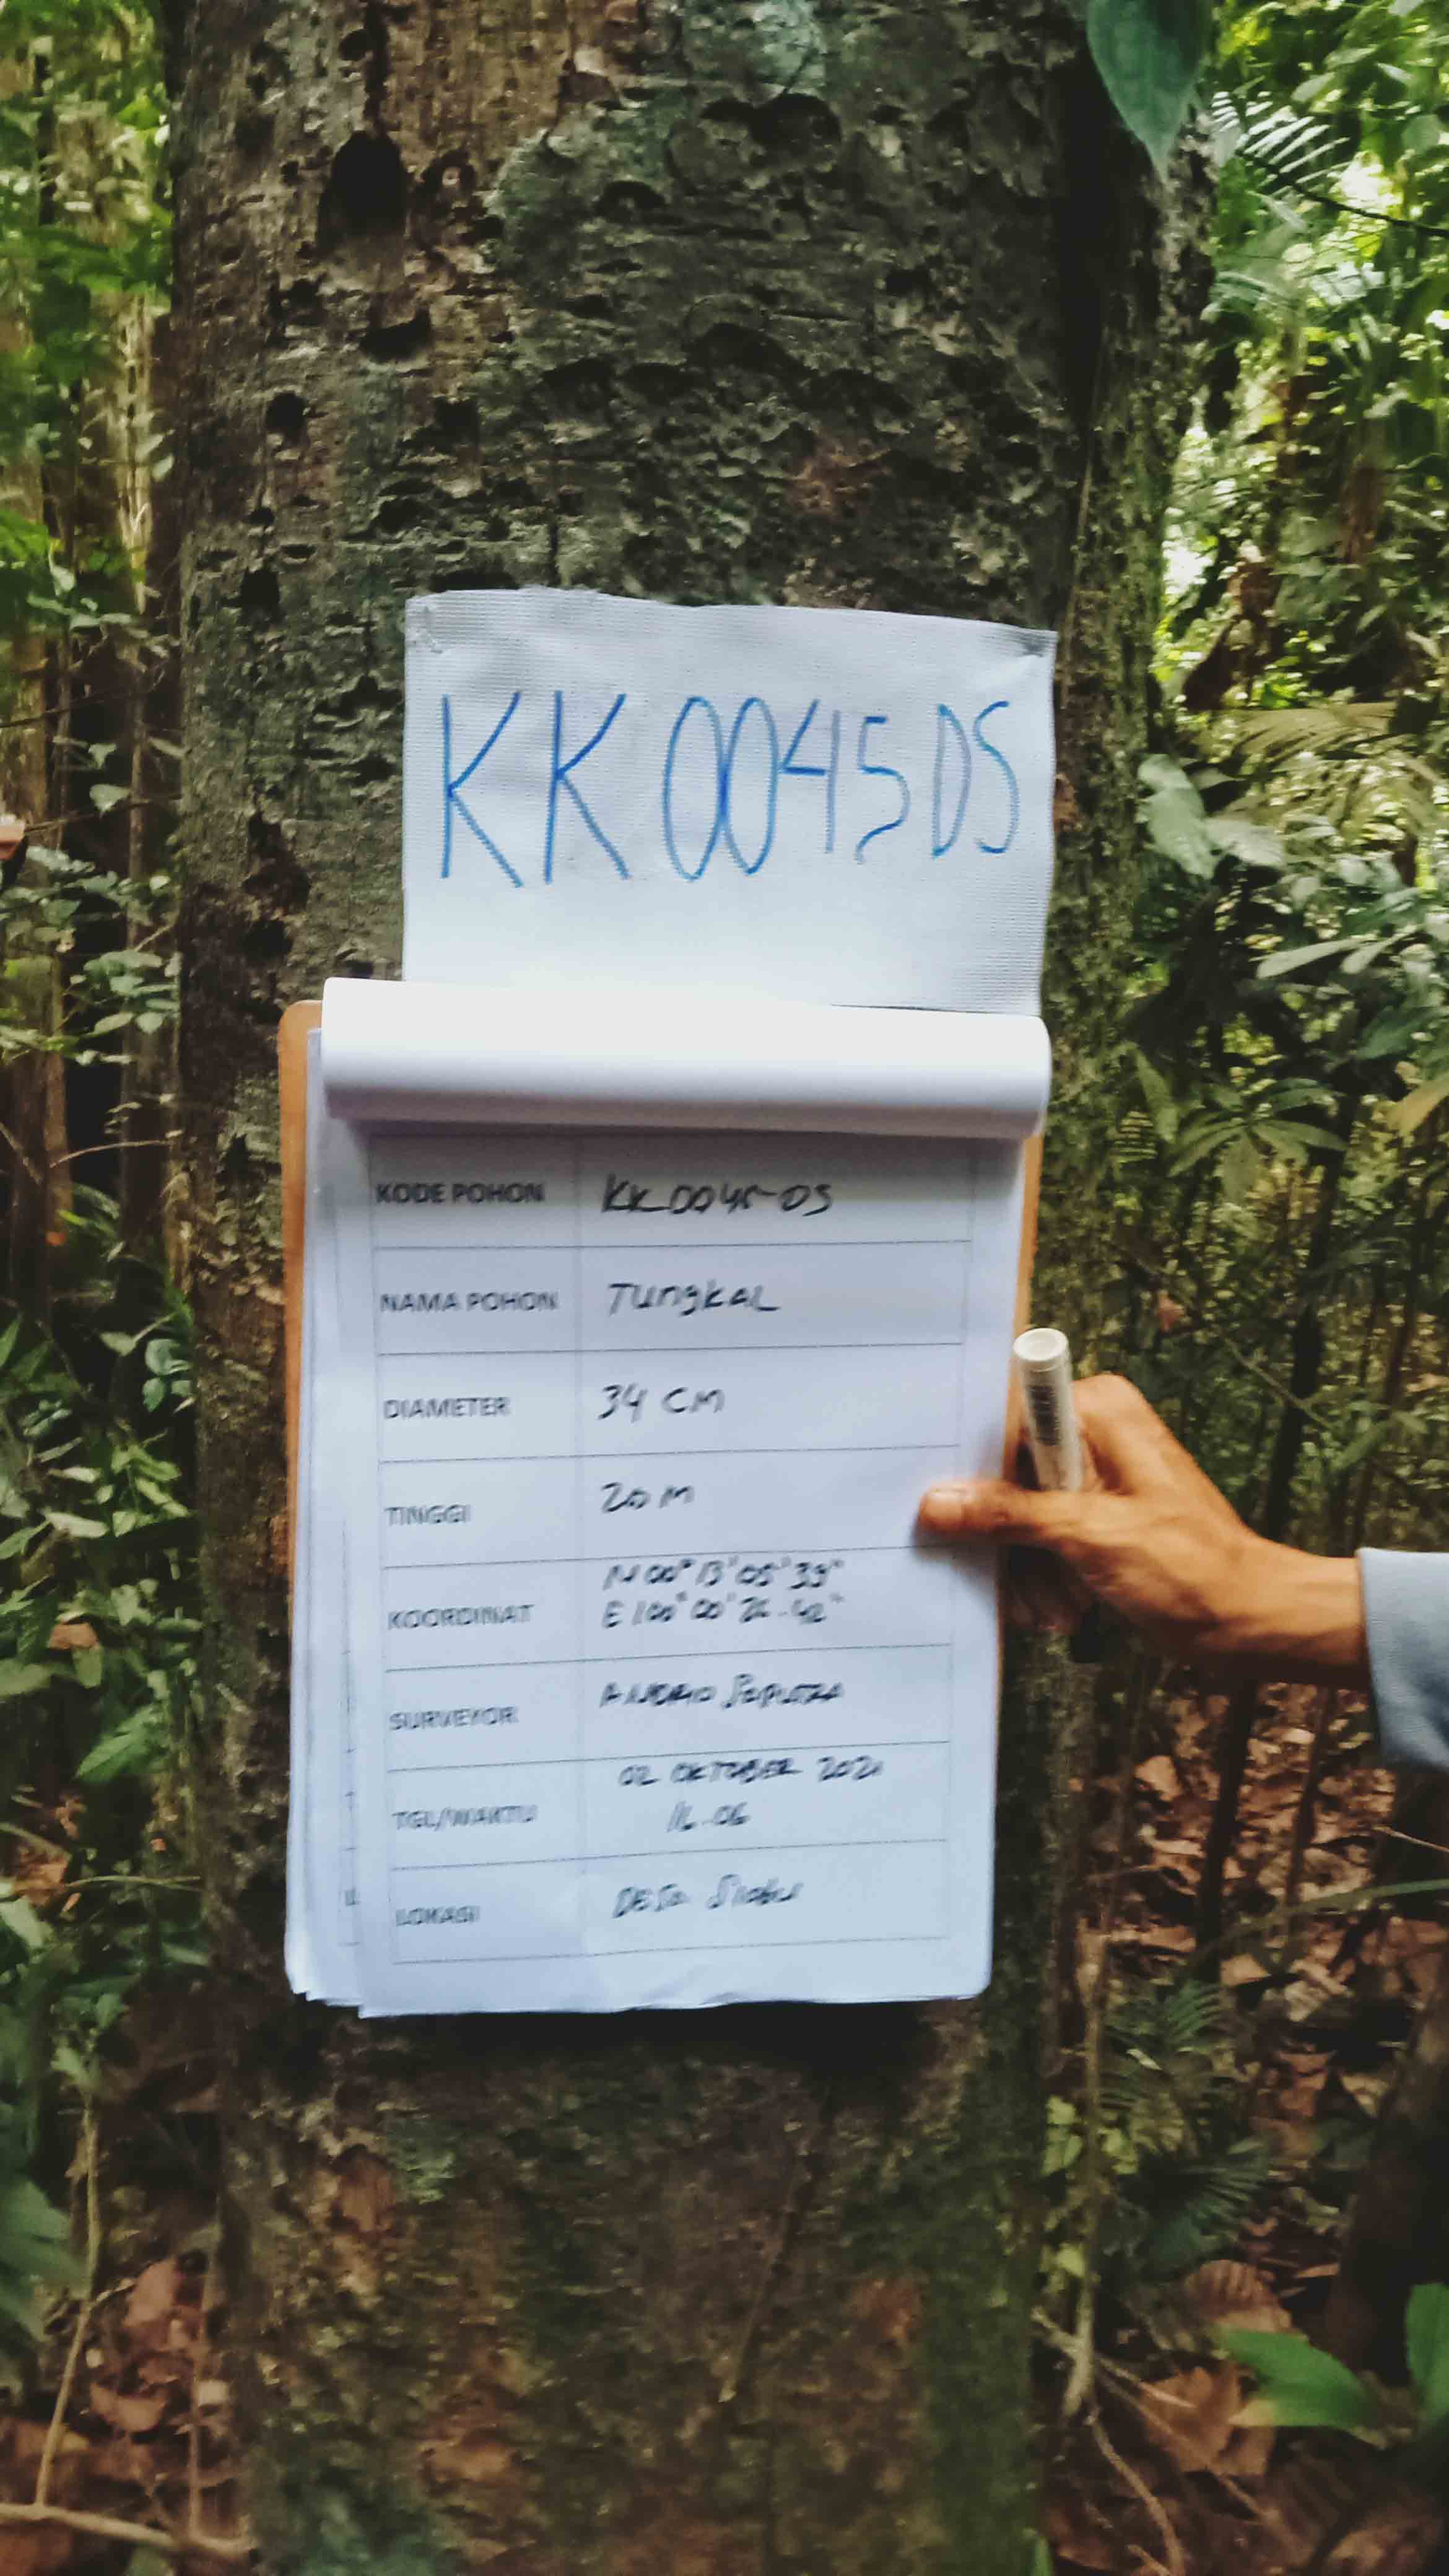 KK0045DS
KODE POHON KK0045-DS
NAMA POHON TUngkAL
DIAMETER 34 CM
TINGGI 20 M
KOORDINAT N 00° 13' 05' 39"
E 100° 00'
SURVEYOR
TGL/WAKTU 02 OKTOBER 2021
LOKASI DESA